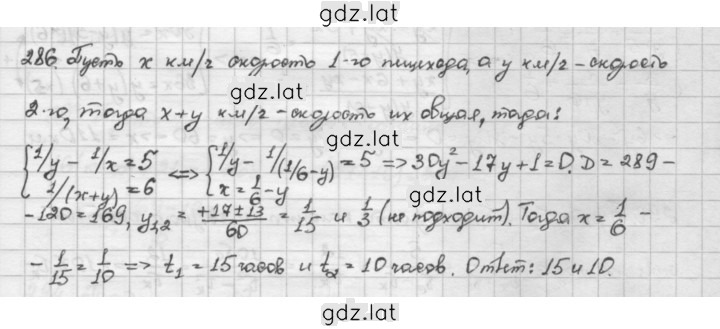 gdz.lat
286. Пусть x км/г скорость 1-го пешехода, а y км/г - скорость
gdz.lat
2-го, тогда x+y км/г - скорость их общая, тогда:
{1/y - 1/x = 5 <=> {1/y - 1/(1/6-y) = 5 => 30y² - 17y + 1 = 0. D = 289 -
1/(x+y) = 6 x = 1/6 - y
gdz.lat
- 120 = 169, y1,2 = +17±13/60 = 1/15 и 1/3 (не подходит). Тогда x = 1/6 -
- 1/15 = 1/10 => t1 = 15 часов и t2 = 10 часов. Ответ: 15 и 10.
gdz.lat